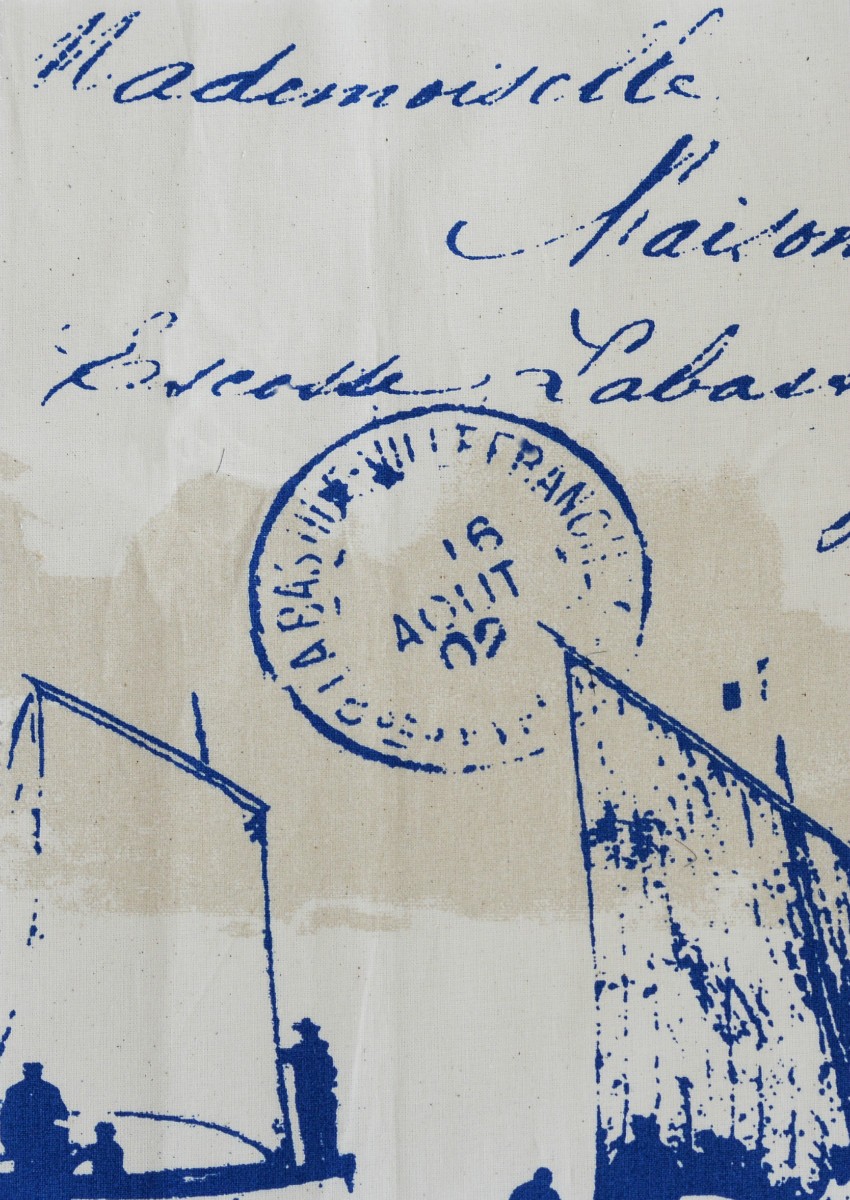 Mademoiselle
Maison
Escosse, Labas
LABASTIDE-VILLEFRANCHE
16
AOUT
02